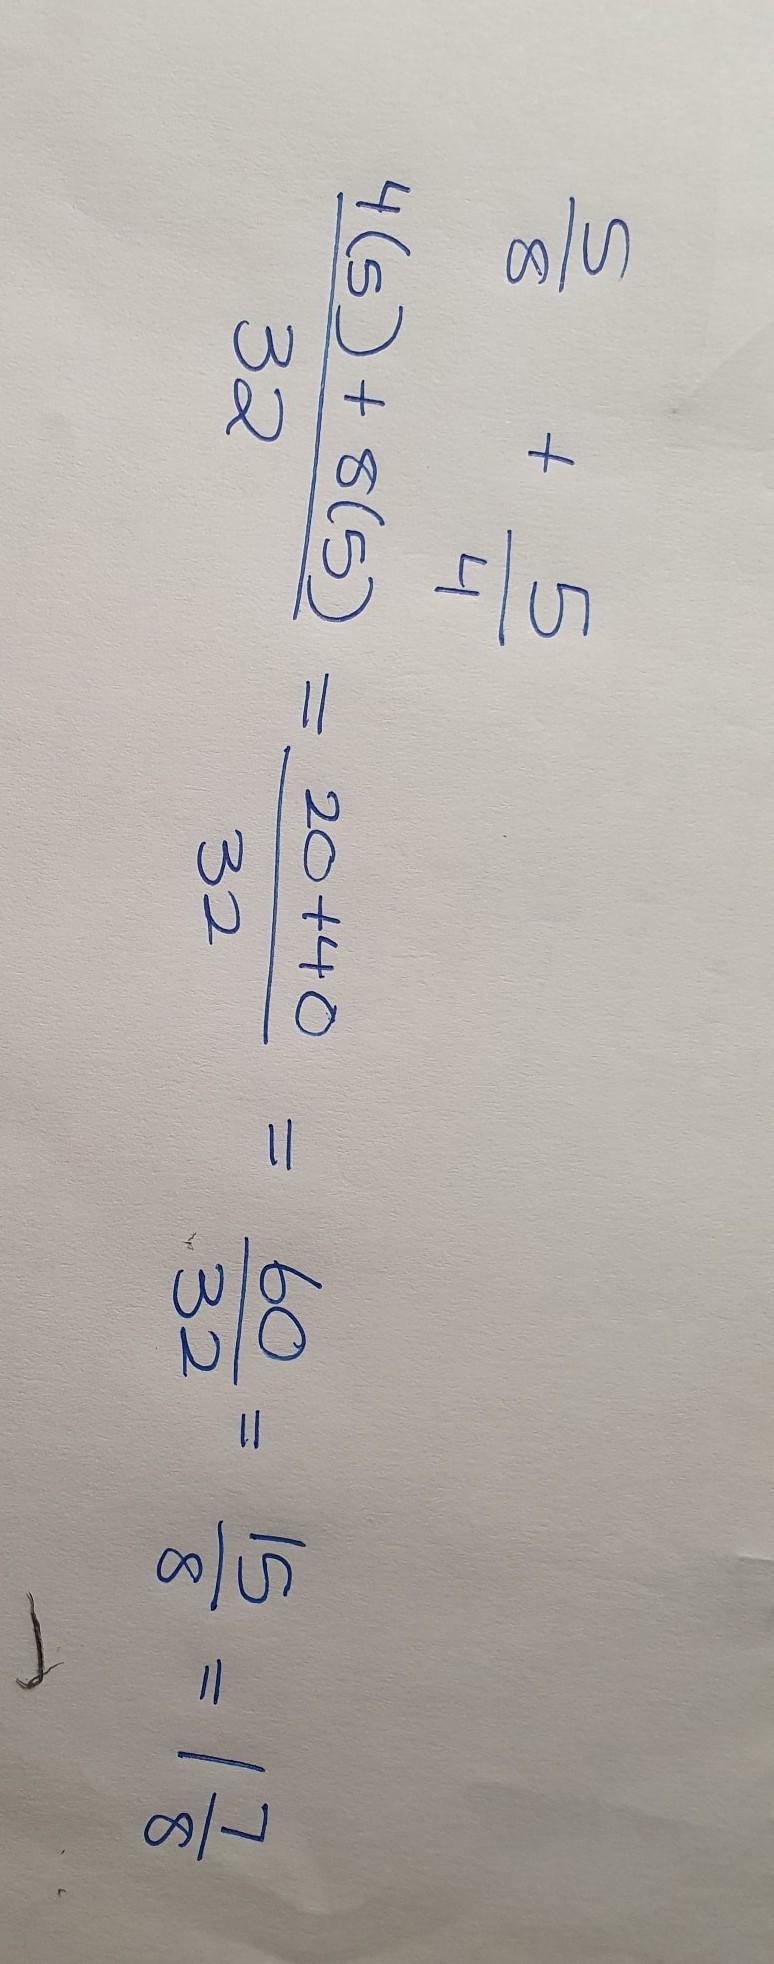 5/8 + 5/4
4(5) + 8(5)/32 = 20+40/32 = 60/32 = 15/8 = 1 7/8